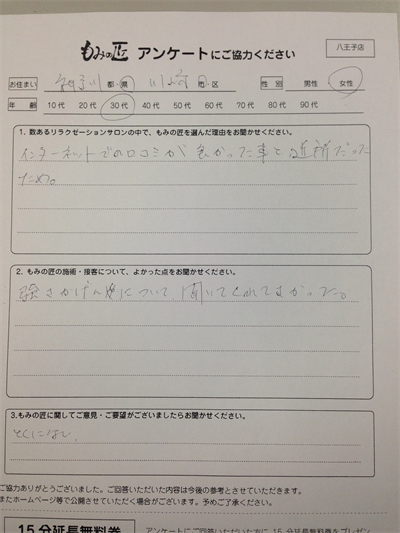 もみの匠 アンケートにご協力ください
八王子店
お住まい 神奈川 都・県 川崎 市・区 性別 男性 女性
年齢 10代 20代 30代 40代 50代 60代 70代 80代 90代
1. 数あるリラクゼーションサロンの中で、もみの匠を選んだ理由をお聞かせください。
インターネットでの口コミが良かった事と近所だった
ため。
2. もみの匠の施術・接客について、よかった点をお聞かせください。
強さかげん等について、聞いてくれてよかった。
3.もみの匠に関してご意見・ご要望がございましたらお聞かせください。
とくになし
ご協力ありがとうございました。ご回答いただいた内容は今後の参考とさせていただきます。
またホームページ等で公開させていただく場合がございます。予めご了承ください。
15分延長無料券
アンケートにご回答いただいた方に、15分延長無料券をプレゼン